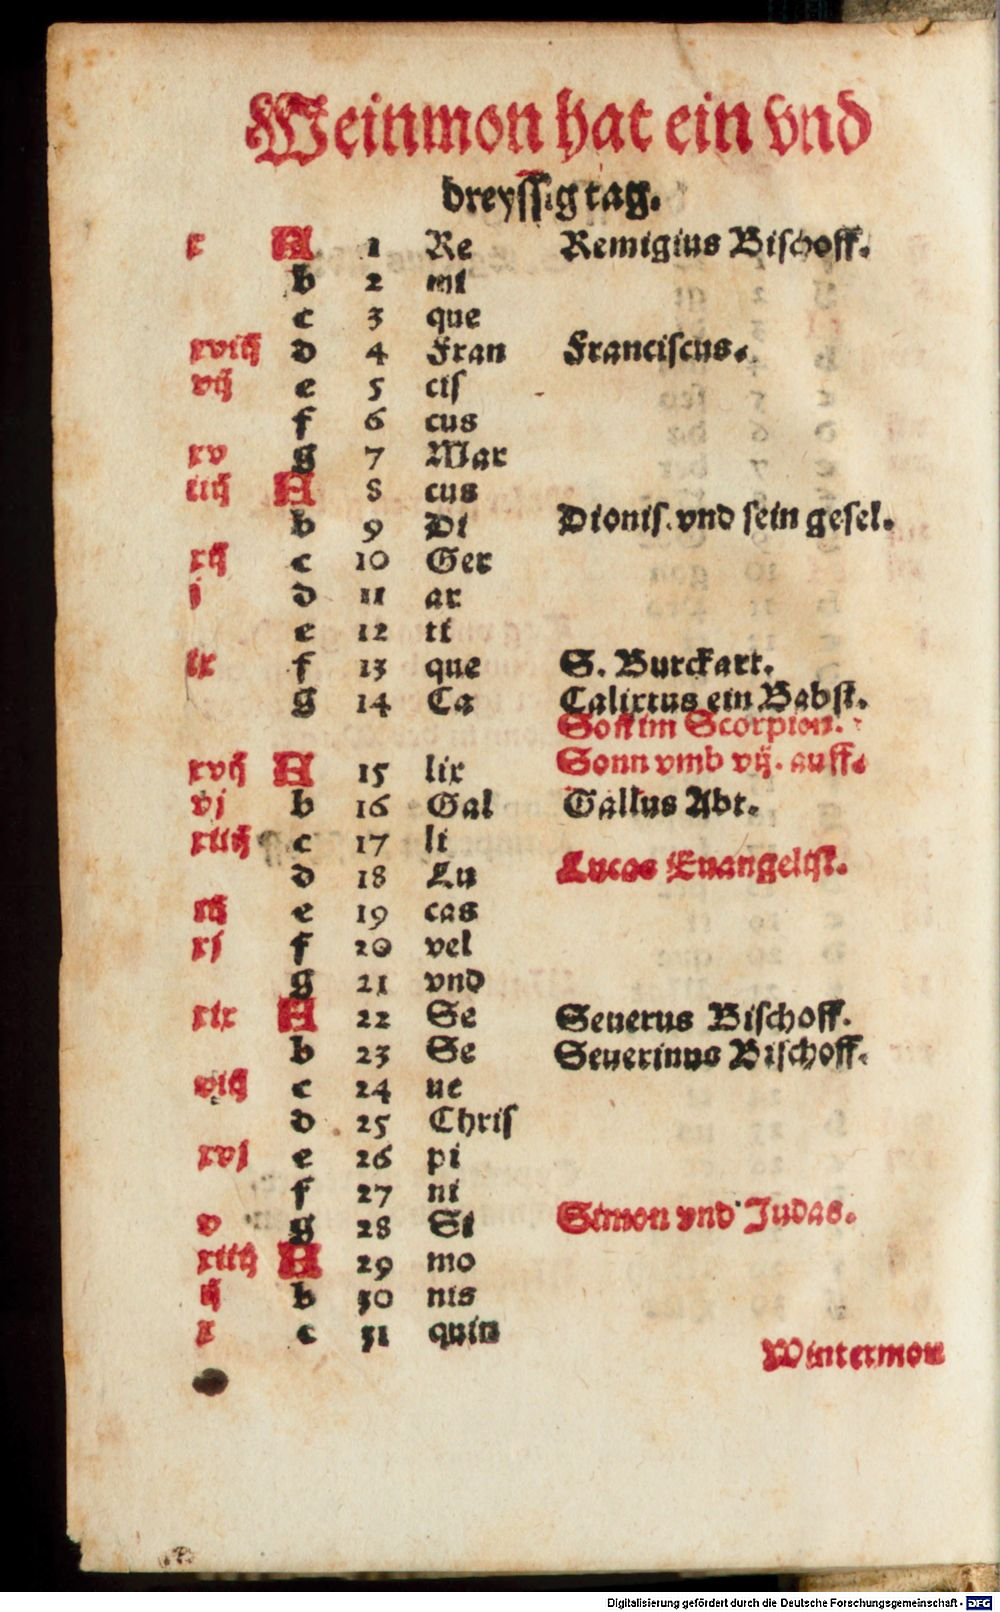 Weinmon hat ein vnd
dreyssig tag.
x A 1 Re Remigius Bischoff.
b 2 mi
c 3 que
xviij d 4 Fran Franciscus.
vij e 5 cis
f 6 cus
xv g 7 Mar
iiij A 8 cus
b 9 Di Dionis. vnd sein gesel.
xij c 10 Ger
j d 11 ar
e 12 ti
ix f 13 que S. Burckart.
g 14 Ca Calixtus ein Babst.
Soñ im Scorpion.
xvij A 15 lix Sonn vmb vij. auff.
vj b 16 Gal Gallus Abt.
xiiij c 17 li
d 18 Lu Lucas Euangelist.
iij e 19 cas
xj f 20 vel
g 21 vnd
xix A 22 Se Seuerus Bischoff.
b 23 Se Seuerinus Bischoff.
viij c 24 ue
d 25 Chris
xvj e 26 pi
f 27 ni
v g 28 Si Simon vnd Judas.
xiij A 29 mo
ij b 30 nis
x c 31 quin
Wintermon
Digitalisierung gefördert durch die Deutsche Forschungsgemeinschaft - DFG